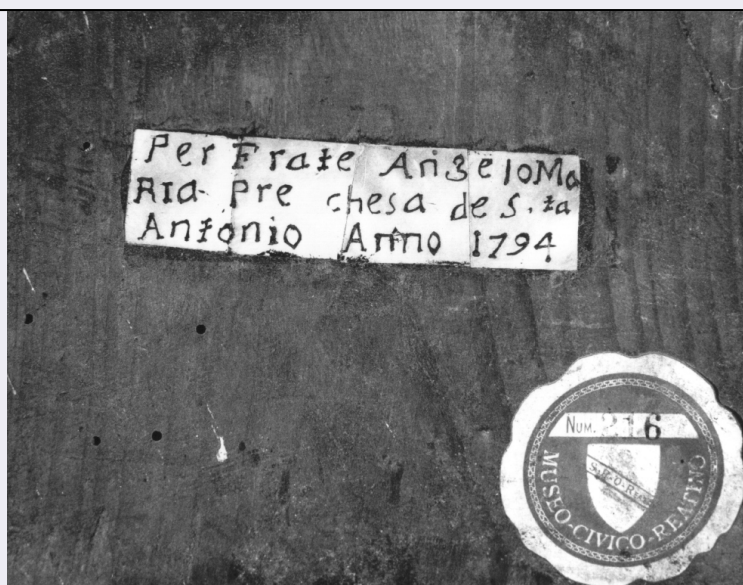 Per Frate Angelo Ma
RIa Pre chesa de S. ta
Antonio Anno 1794
NUM. 216
S.P.Q.Rea
MUSEO-CIVICO-REATINO